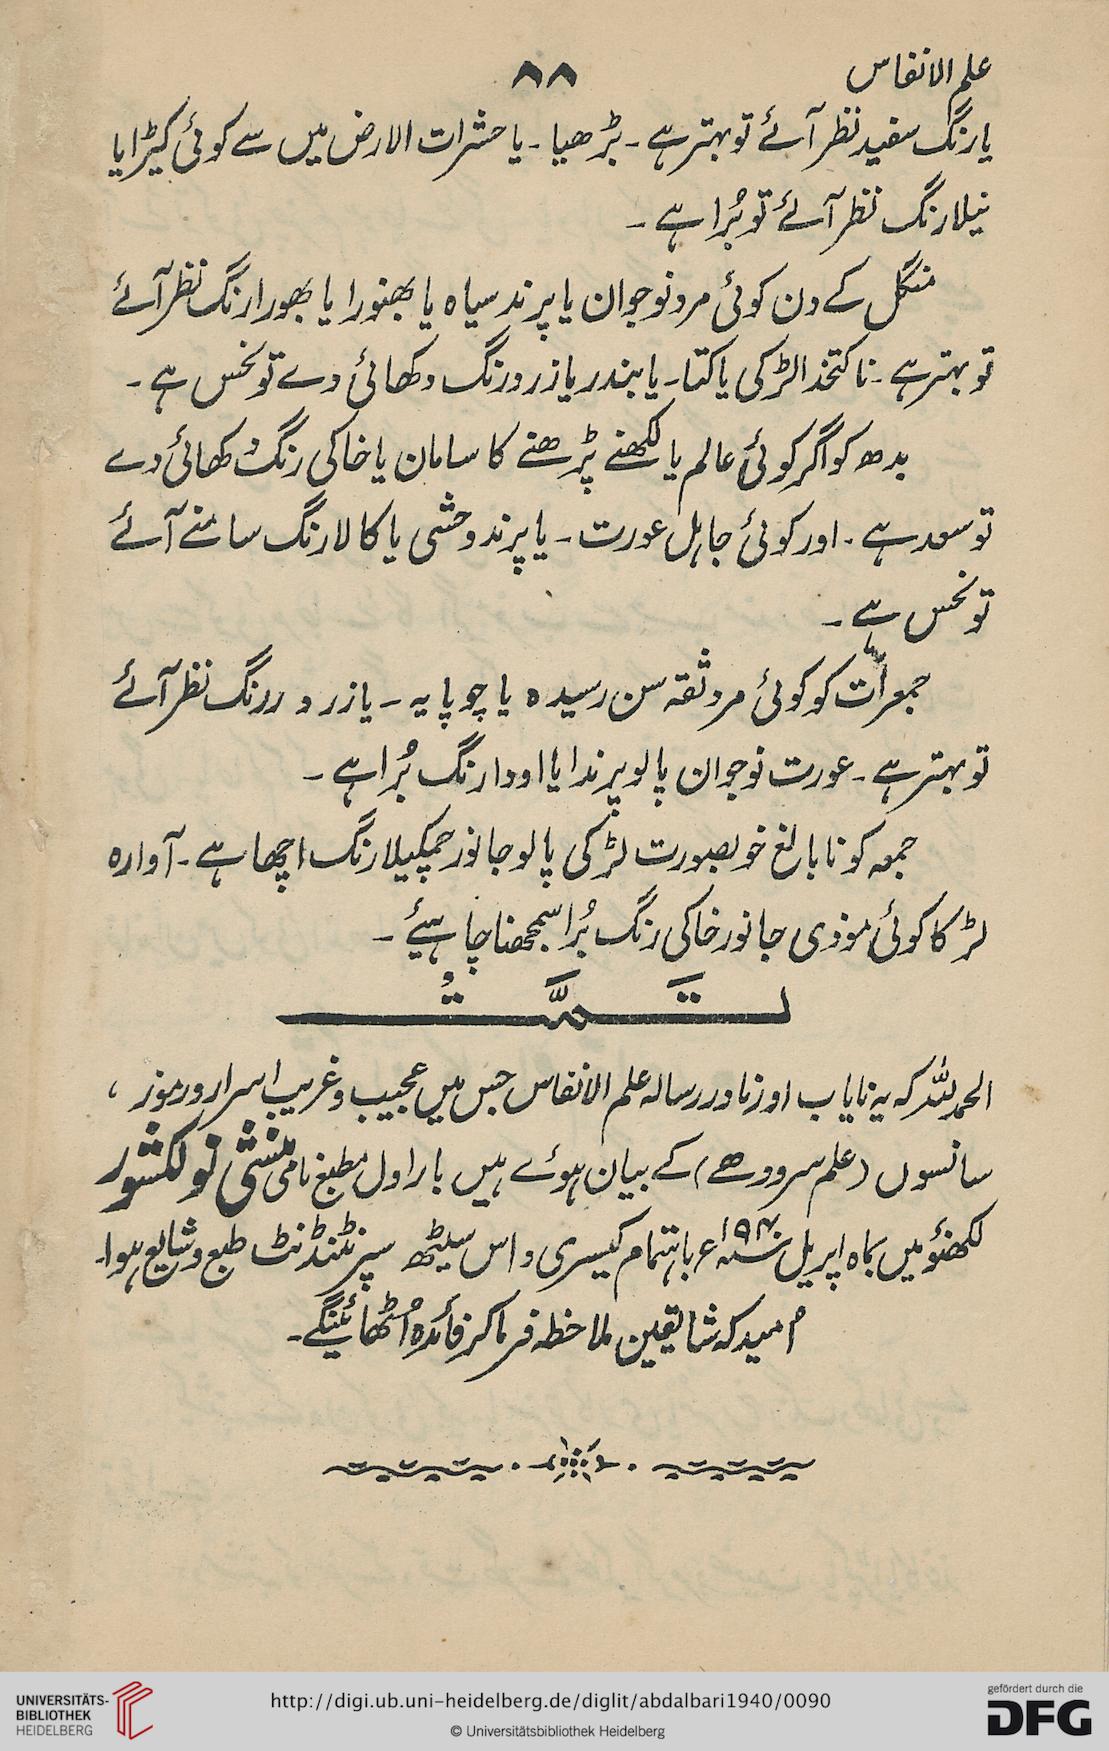 علم الانفاس
۸۸
یا رنگ سفید نظر آئے تو بہتر ہے ۔ بڑھیا ۔ یا حشرات الارض میں سے کوئی کیڑا یا
نیلا رنگ نظر آئے تو بُرا ہے ۔
منگل کے دن کوئی مرد نوجوان یا پرند سیاہ یا بھنورا یا بھورا رنگ نظر آئے
تو بہتر ہے ۔ ناکتخدا لڑکی یا کتا ۔ یا بندر یا زرد رنگ دکھائی دے تو نحس ہے ۔
بدھ کو اگر کوئی عالم یا لکھنے پڑھنے کا سامان یا خاکی رنگ دکھائی دے
تو سعد ہے ۔ اور کوئی جاہل عورت ۔ یا پرند وحشی یا کالا رنگ سامنے آئے
تو نحس ہے ۔
جمعرات کو کوئی مرد ثقہ سن رسیدہ یا چوپایہ ۔ یا زرد رنگ نظر آئے
تو بہتر ہے ۔ عورت نوجوان پالو پرندا یا اودا رنگ بُرا ہے ۔
جمعہ کو نابالغ خوبصورت لڑکی پالو جانور چمکیلا رنگ اچھا ہے ۔ آوارہ
لڑکا کوئی موذی جانور خاکی رنگ بُرا سمجھنا چاہئے ۔
تَمَّتْ
الحمد للہ کہ یہ نایاب اور نادر رسالہ علم الانفاس جس میں عجیب و غریب اسرار و رموز ،
سانسوں (علم سرودھے) کے بیان ہوئے ہیں بار اول مطبع نامی منشی نولکشور
لکھنؤ میں بماہ اپریل سنہ ۱۹۴۰ء باہتمام کیسری داس سیٹھ سپرنٹنڈنٹ طبع و شایع ہوا۔
اُمید کہ شایقین ملاحظہ فرما کر فائدہ اُٹھائینگے۔
UNIVERSITÄTS-
BIBLIOTHEK
HEIDELBERG
http://digi.ub.uni-heidelberg.de/diglit/abdalbari1940/0090
© Universitätsbibliothek Heidelberg
gefördert durch die
DFG